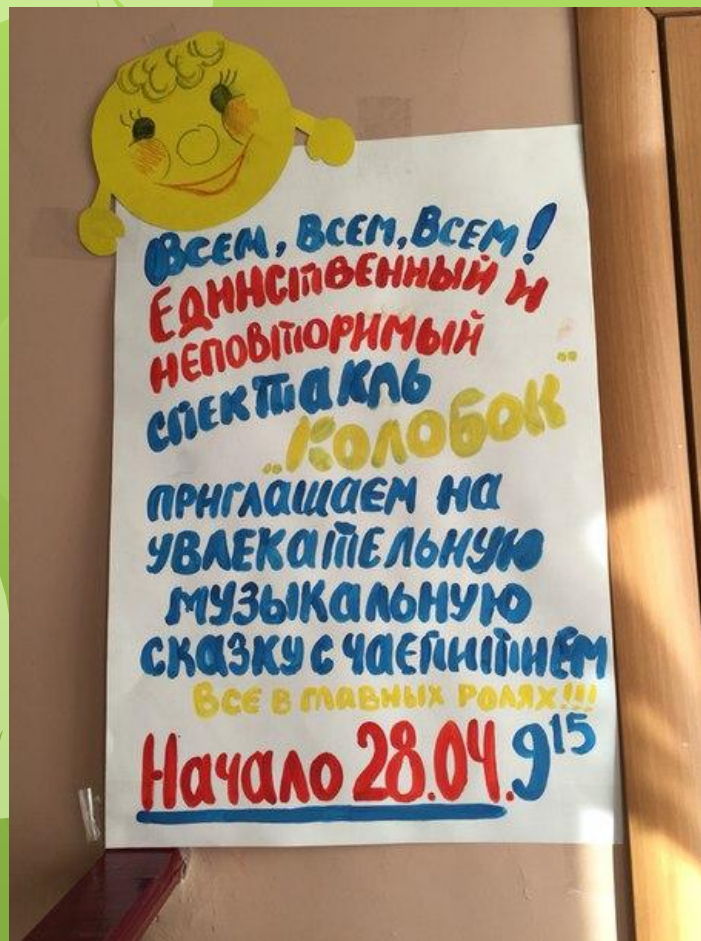 Всем, Всем, Всем!
Единственный и
неповторимый
спектакль
„Колобок"
приглашаем на
увлекательную
музыкальную
сказку с чаепитием
Все в главных ролях!!!
Начало 28.04. 9 15